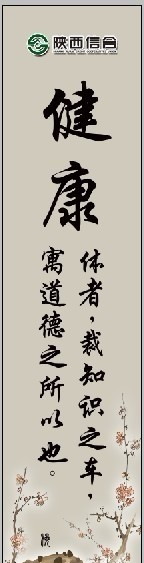 陕西信合
健康
体者，载知识之车，
寓道德之所以也。